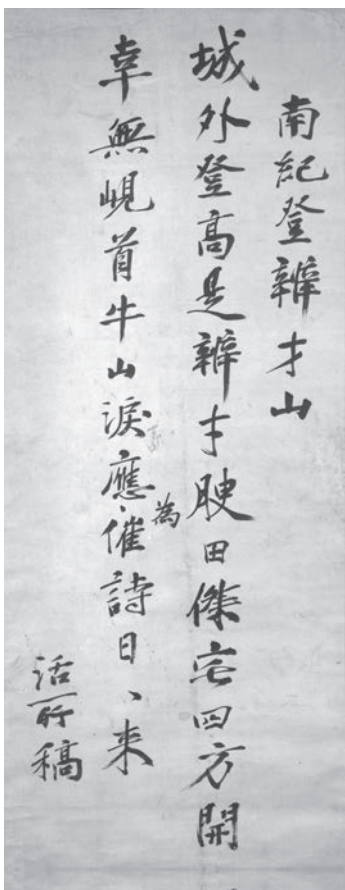 南紀登辨才山
城外登高是辨才腴田傑宅四方開
幸無峴首牛山淚應為催詩日、来
活所稿